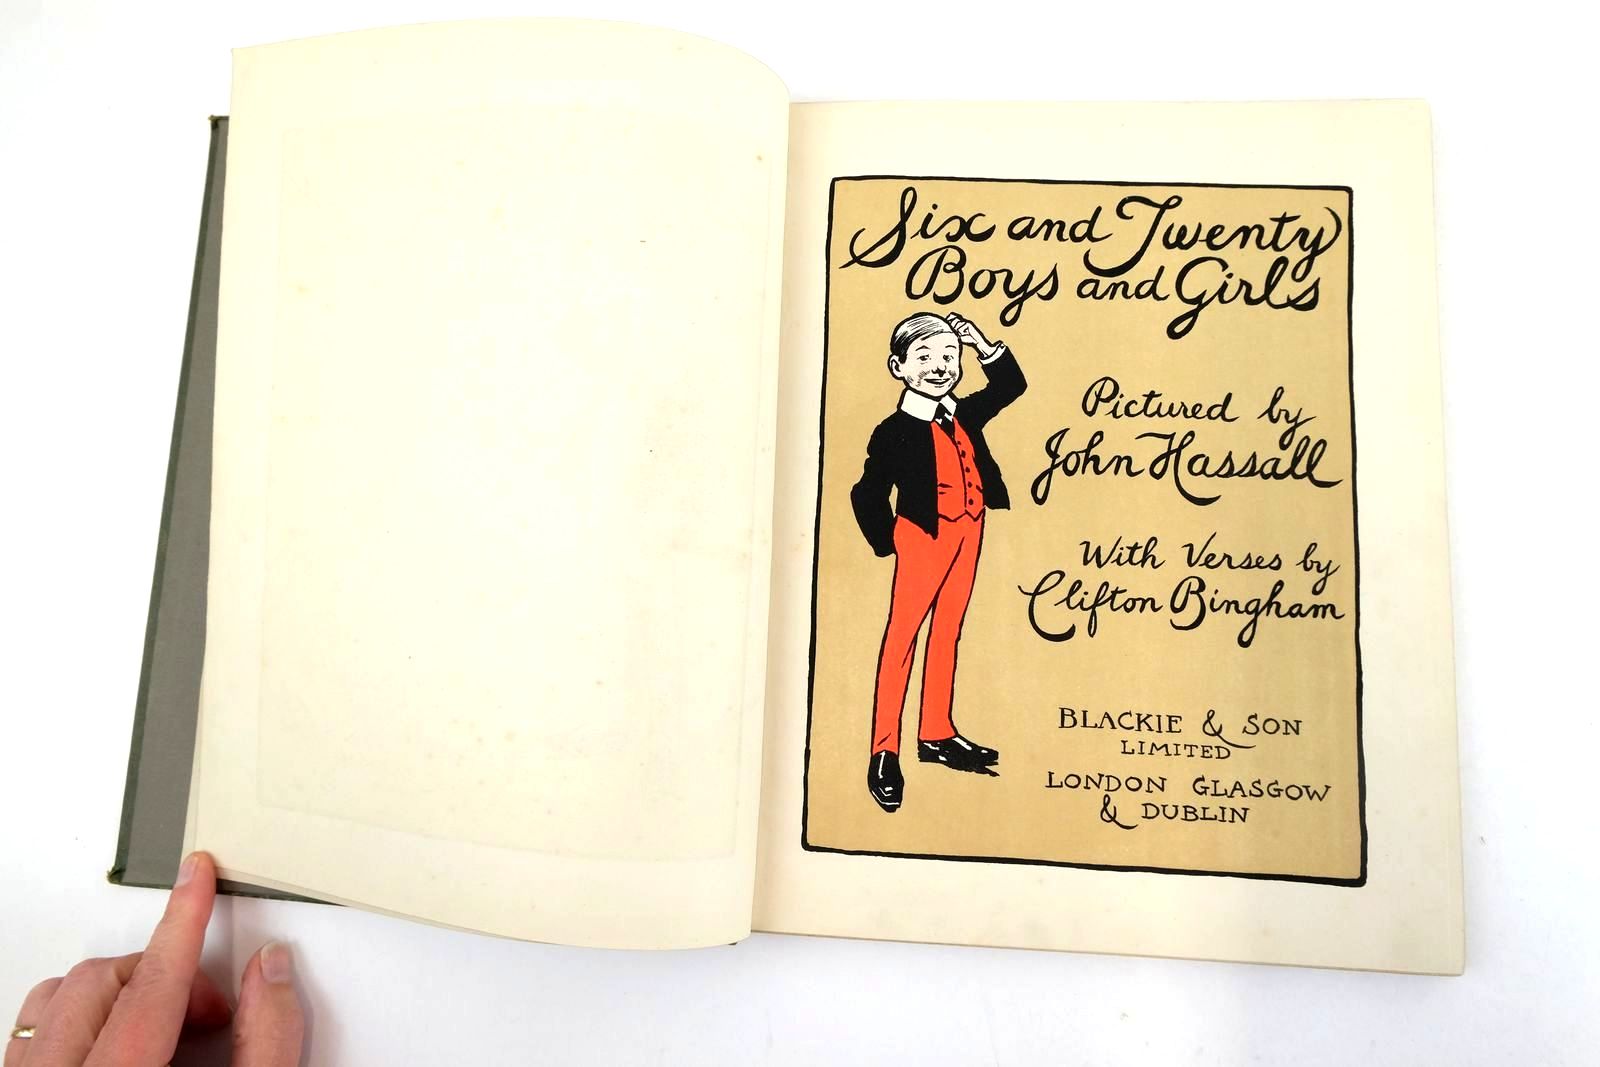 Six and Twenty
Boys and Girls
Pictured by
John Hassall
With Verses by
Clifton Bingham
BLACKIE & SON
LIMITED
LONDON GLASGOW
& DUBLIN